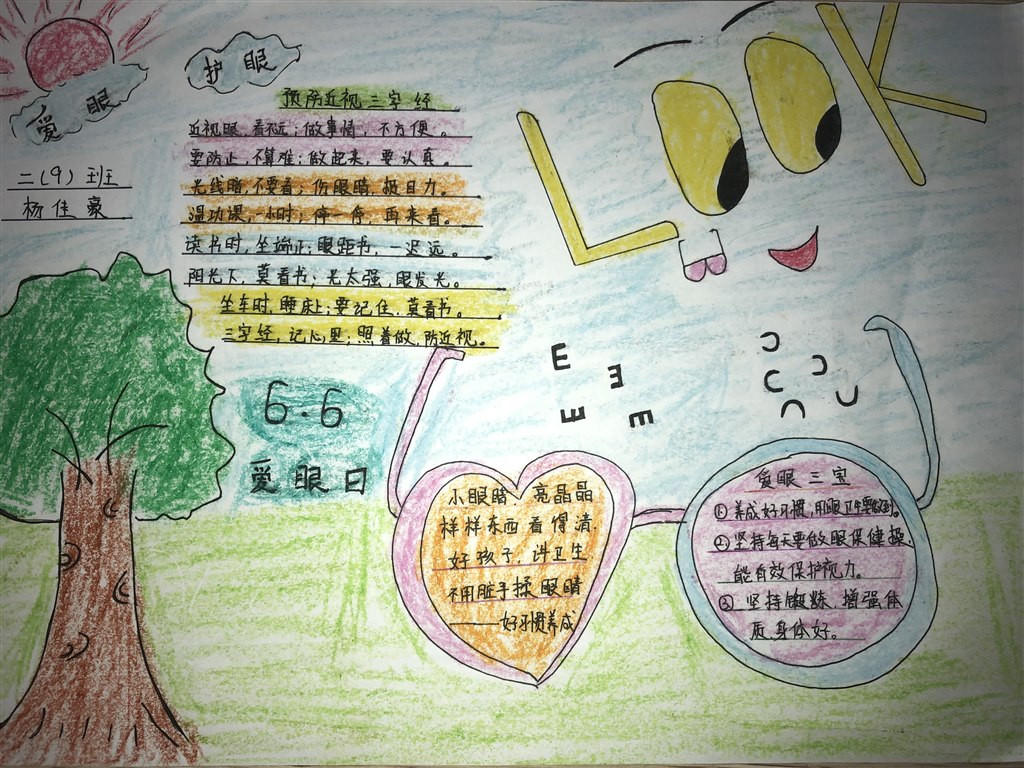 爱眼
二(9)班
杨佳豪
护眼
预防近视三字经
近视眼,看不远;做事情,不方便。
要防止,不算难;做起来,要认真。
光线暗,不要看;伤眼睛,损目力。
温功课,一小时;停一停,再来看。
读书时,坐端正;眼距书,一迟远。
阳光下,莫看书;光太强,眼发光。
坐车时,睡床上;要记住,莫看书。
三字经,记心里;照着做,防近视。
LOOK
6.6
爱眼日
E
E
E
E
C
C
C
C
C
小眼睛、亮晶晶
样样东西看得清.
好孩子,讲卫生
不用脏手揉眼睛
——好习惯养成
爱眼三宝
①养成好习惯,用眼卫生要做到。
②坚持每天要做眼保健操、
能有效保护视力。
③坚持锻炼,增强体
质,身体好。